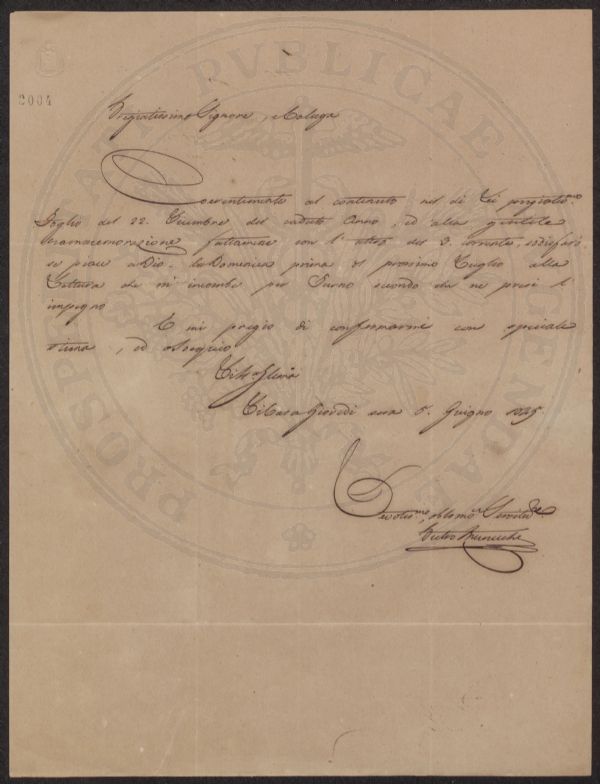 2004
Pregiatissimo Signore, e Collega
Coerentemente al contenuto nel di Lei pregiatis.mo
Foglio del 22. Dicembre del caduto Anno, ed alla gentile
fattamene con l'altro del 3. corrente,
se piace a Dio, la Domenica prima di prossimo Luglio alla
Lettura che mi incombe per Turno secondo che ne presi l'
impegno
E mi pregio di confermarmi con speciale
stima, ed ossequio
Di Casa Giovedì sera 5. Giugno 1845
Devotis.mo, obb.mo Servitore
Pietro
PROSPERITATI PVBLICAE AVGENDAE